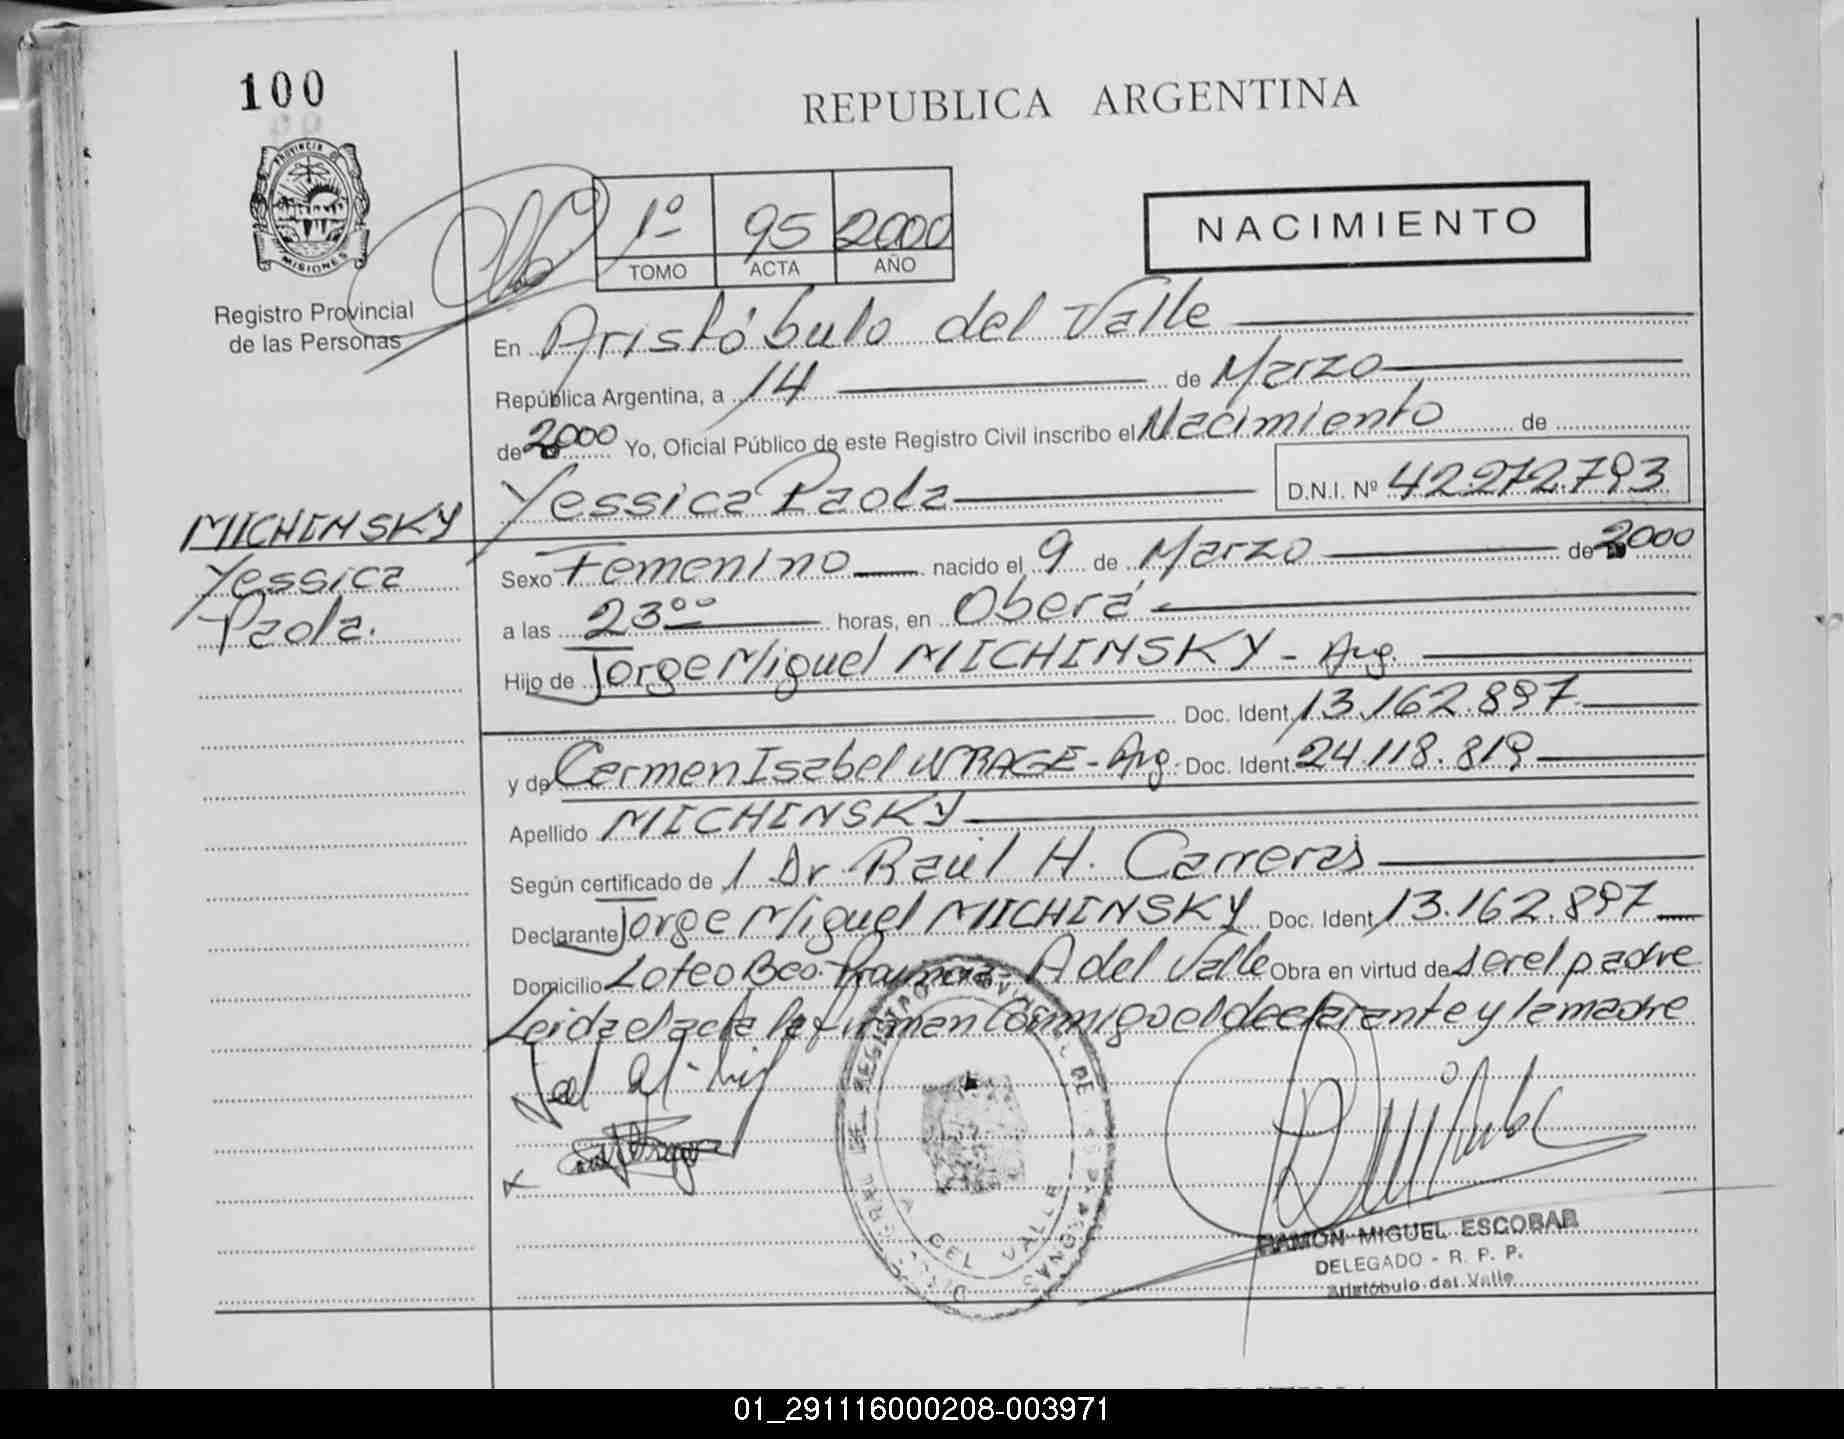 100
REPUBLICA ARGENTINA
PROVINCIA DE
MISIONES
Registro Provincial
de las Personas
1º 95 2000
TOMO ACTA AÑO
NACIMIENTO
En Aristóbulo del Valle
República Argentina, a 14 de Marzo
de 2000 Yo, Oficial Público de este Registro Civil inscribo el Nacimiento de
Yessica Paola D.N.I. Nº 42.272.793
MICHINSKY
Yessica
Paola.
Sexo Femenino nacido el 9 de Marzo de 2000
a las 23ºº horas, en Oberá
Hijo de Jorge Miguel MICHINSKY - Arg.
Doc. Ident. 13.162.897
y de Carmen Isabel WRAGE - Arg. Doc. Ident. 24.118.819
Apellido MICHINSKY
Según certificado de 1 Dr Raúl H. Carreras
Declarante Jorge Miguel MICHINSKY Doc. Ident. 13.162.897
Domicilio Loteo Bco. Provincia - A del Valle Obra en virtud de ser el padre
Leida el acta la firman conmigo el declarante y la madre
REGISTRO PROVINCIAL DE LAS PERSONAS
A DEL VALLE
RAMON MIGUEL ESCOBAR
DELEGADO - R. P. P.
Aristóbulo del Valle
01_291116000208-003971